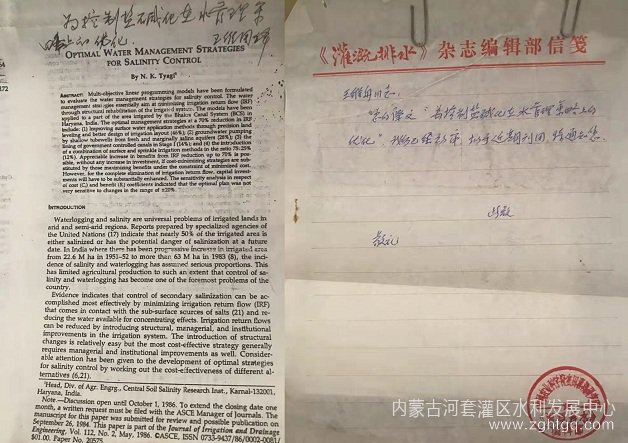 为控制盐碱化在水管理策
略上的优化
OPTIMAL WATER MANAGEMENT STRATEGIES
FOR SALINITY CONTROL
By N. K. Tyagi¹
ABSTRACT: Multi-objective linear programming models have been formulated
to evaluate the water management strategies for salinity control. The water
management strategies essentially aim at minimizing irrigation return flow (IRF)
through structural rehabilitation of the irrigation system. The models have been
applied to a part of the area irrigated by the Bhakra Canal System (BCS) in
Haryana, India. The optimal management strategies at a 70% reduction in IRF
include: (1) Improving surface water application methods through precision land
leveling and better design of irrigation layout (46%); (2) groundwater pumping
by shallow tubewells from fresh and marginally saline aquifers (28%); (3) the
lining of government controlled canals in Stage I (14%); and (4) the introduction
of a combination of surface and sprinkle irrigation methods in the ratio 75:25%
(12%). Appreciable increase in benefits from IRF reduction up to 70% is pos-
sible, without any increase in investment, if cost-minimizing strategies are sub-
stituted by those maximizing benefits under the constraint of minimized cost.
However, for the complete elimination of irrigation return flow, capital invest-
ments will have to be substantially enhanced. The sensitivity analysis in respect
of cost (C) and benefit (B) coefficients indicated that the optimal plan was not
very sensitive to changes in the range of ±20%.
INTRODUCTION
Waterlogging and salinity are universal problems of irrigated lands in
arid and semi-arid regions. Reports prepared by specialized agencies of
the United Nations (17) indicate that nearly 50% of the irrigated area is
either salinized or has the potential danger of salinization at a future
date. In India where there has been progressive increase in irrigated area
from 22.6 M ha in 1951–52 to more than 63 M ha in 1983 (8), the inci-
dence of salinity and waterlogging has assumed serious proportions. This
has limited agricultural production to such an extent that control of sa-
linity and waterlogging has become one of the foremost problems of the
country.
Evidence indicates that control of secondary salinization can be ac-
complished most effectively by minimizing irrigation return flow (IRF)
that comes in contact with the sub-surface sources of salts (21) and re-
ducing the water available for concentrating effects. Irrigation return flows
can be reduced by introducing structural, managerial, and institutional
improvements in the irrigation system. The introduction of structural
changes is relatively easy but the most cost-effective strategy generally
requires managerial and institutional improvements as well. Consider-
able attention has been given to the development of optimal strategies
for salinity control by working out the cost-effectiveness of different al-
ternatives (6,2,11).
¹Head, Div. of Agr. Engrg., Central Soil Salinity Research Inst., Karnal-132001,
Haryana, India.
Note.—Discussion open until October 1, 1986. To extend the closing date one
month, a written request must be filed with the ASCE Manager of Journals. The
manuscript for this paper was submitted for review and possible publication on
September 26, 1984. This paper is part of the Journal of Irrigation and Drainage
Engineering, Vol. 112, No. 2, May, 1986. ©ASCE, ISSN 0733-9437/86/0002-0081/
$01.00. Paper No. 20575.
《灌溉排水》杂志编辑部信笺
同志:
为控制盐碱化在水管理策略上的
优化"
此致
敬礼
内蒙古河套灌区水利发展中心
www.zghtgq.com